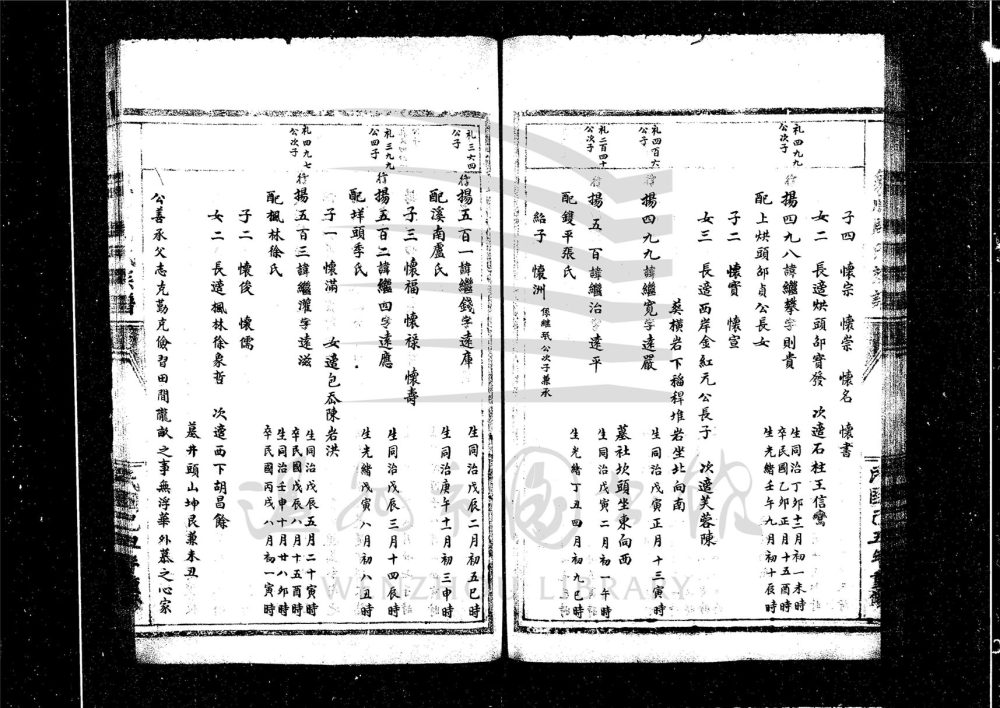 子四 懷宗 懷崇 懷名 懷書
女二 長適烘頭邵寶發 次適石柱王信鸞
礼四九九公次子
行揚四九八諱繼擧字則貴 生同治丁卯十二月初一未時 卒民國乙卯正月十五酉時
配上烘頭邵貞公長女 生光緒壬午九月初十辰時
子二 懷實 懷宣
女三 長適西岸金紅元公長子 次適芙蓉陳
葬橫岩下稻稈堆岩坐北向南
礼四百六公子
行揚四九九諱繼寬字達嚴 生同治戊寅正月十三寅時
墓社坎頭坐東向西
礼二百四十公次子
行揚五百諱繼治字達平 生同治戊寅二月初 午時
配鑊平張氏 生光緒丁丑四月初九巳時
紹子 懷洲 係繼 公次子兼承
礼三六四公子
行揚五百一諱繼錢字達庫 生同治戊辰二月初五巳時
配溪南盧氏 生同治庚午十一月初三申時
子三 懷福 懷祿 懷壽
礼三九九公四子
行揚五百二諱繼四字達應 生同治戊辰三月十四辰時
配垟頭季氏 生光緒戊寅八月初八丑時
子一 懷滿 女適包岙陳岩洪
礼四九七公次子
行揚五百三諱繼灌字達滋 生同治戊辰五月二十寅時 卒民國戊辰八月十五酉時
配楓林徐氏 生同治壬申十月廿八卯時 卒民國丙戌八月初一寅時
子二 懷俊 懷儒
女二 長適楓林徐象哲 次適西下胡昌餘
墓井頭山坤艮兼未丑
公善承父志克勤克儉習田間隴畝之事無浮華外慕之心家
溫州市圖書館
WENZHOU LIBRARY